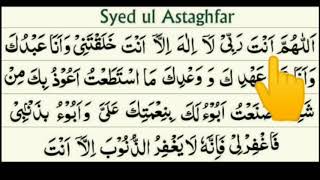 Syed ul Astaghfar
اَللّٰهُمَّ اَنْتَ رَبِّيْ لَآ اِلٰهَ اِلَّا اَنْتَ خَلَقْتَنِيْ وَاَنَا عَبْدُكَ
وَاَنَا عَهْدِكَ وَ وَعْدِكَ مَا اسْتَطَعْتُ اَعُوْذُ بِكَ مِنْ
صَنَعْتُ اَبُوْءُ لَكَ بِنِعْمَتِكَ عَلَيَّ وَ اَبُوْءُ بِذَنْۢبِيْ
فَاغْفِرْلِيْ فَاِنَّهٗ لَا يَغْفِرُ الذُّنُوْبَ اِلَّا اَنْتَ